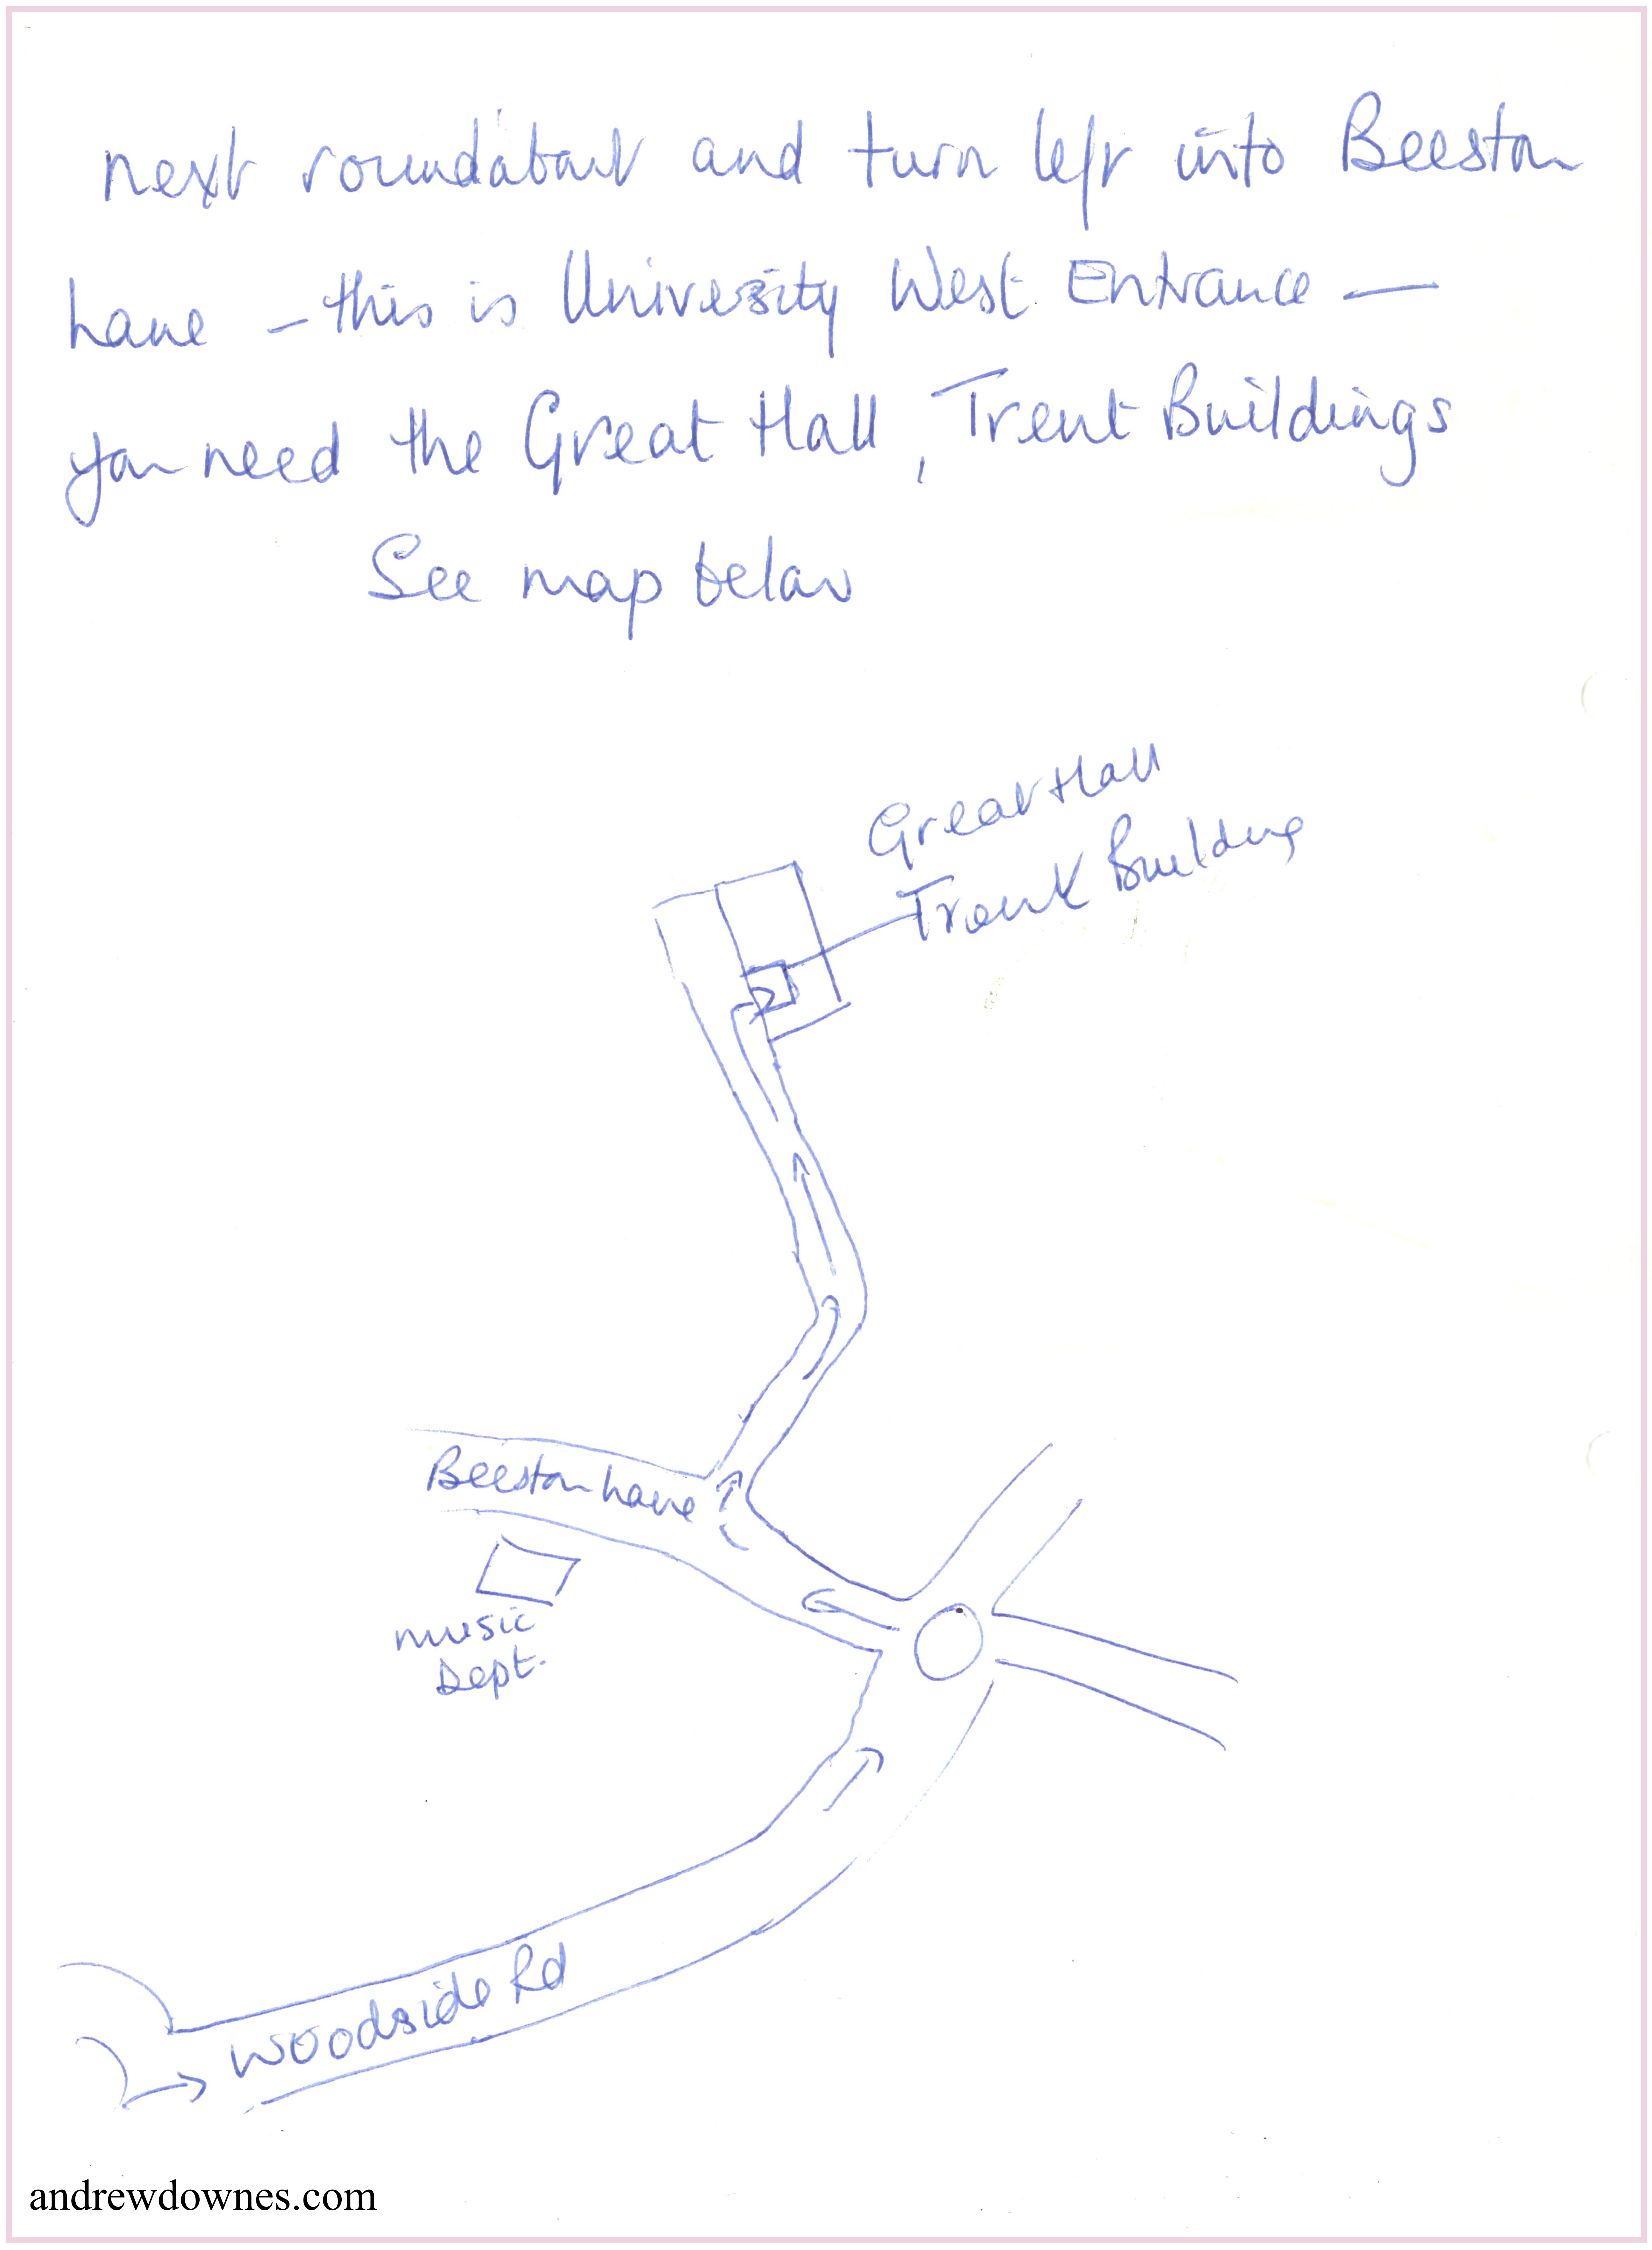 next roundabout and turn left into Beeston
Lane – this is University West Entrance –
you need the Great Hall, Trent Buildings
See map below
Great Hall
Trent Building
Beeston Lane
music
Dept.
Woodside Rd
andrewdownes.com